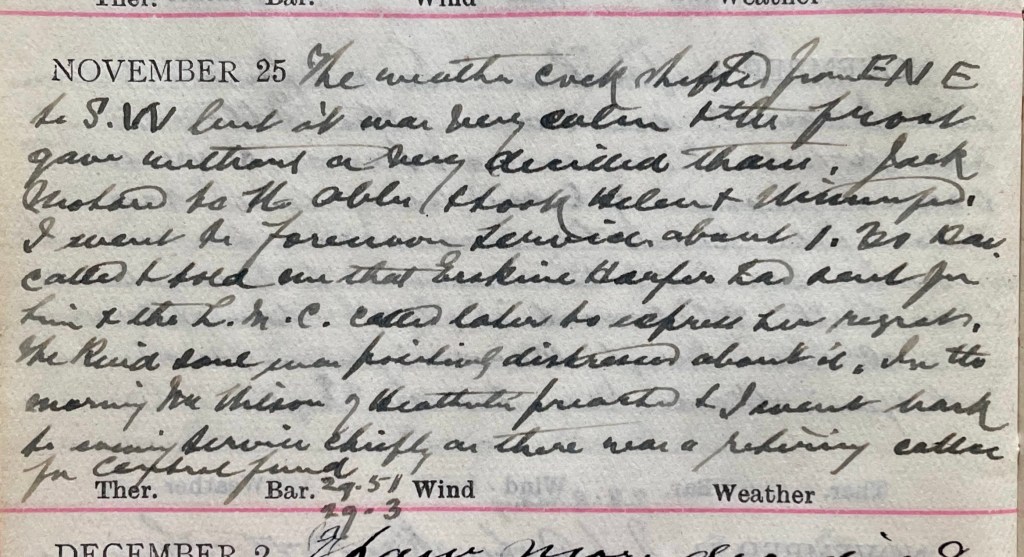 Ther. Bar. Wind Weather
NOVEMBER 25 The weather cock shifted from E N E
to S.W but it was very calm & the frost
gave without a very decided thaw. Jack
to the & took Helen & Winnifred.
I went to forenoon service. about 1.30
called & told me that Erskine Harper had sent for
him & the L.M.C. called later to express her regrets.
The kind soul was positively distressed about it. In the
morning Mr Wilson of preached & I went back
to evening service chiefly as there was a retiring
for Central fund
Ther. Bar. 29.51 Wind Weather
29.3
DECEMBER 2